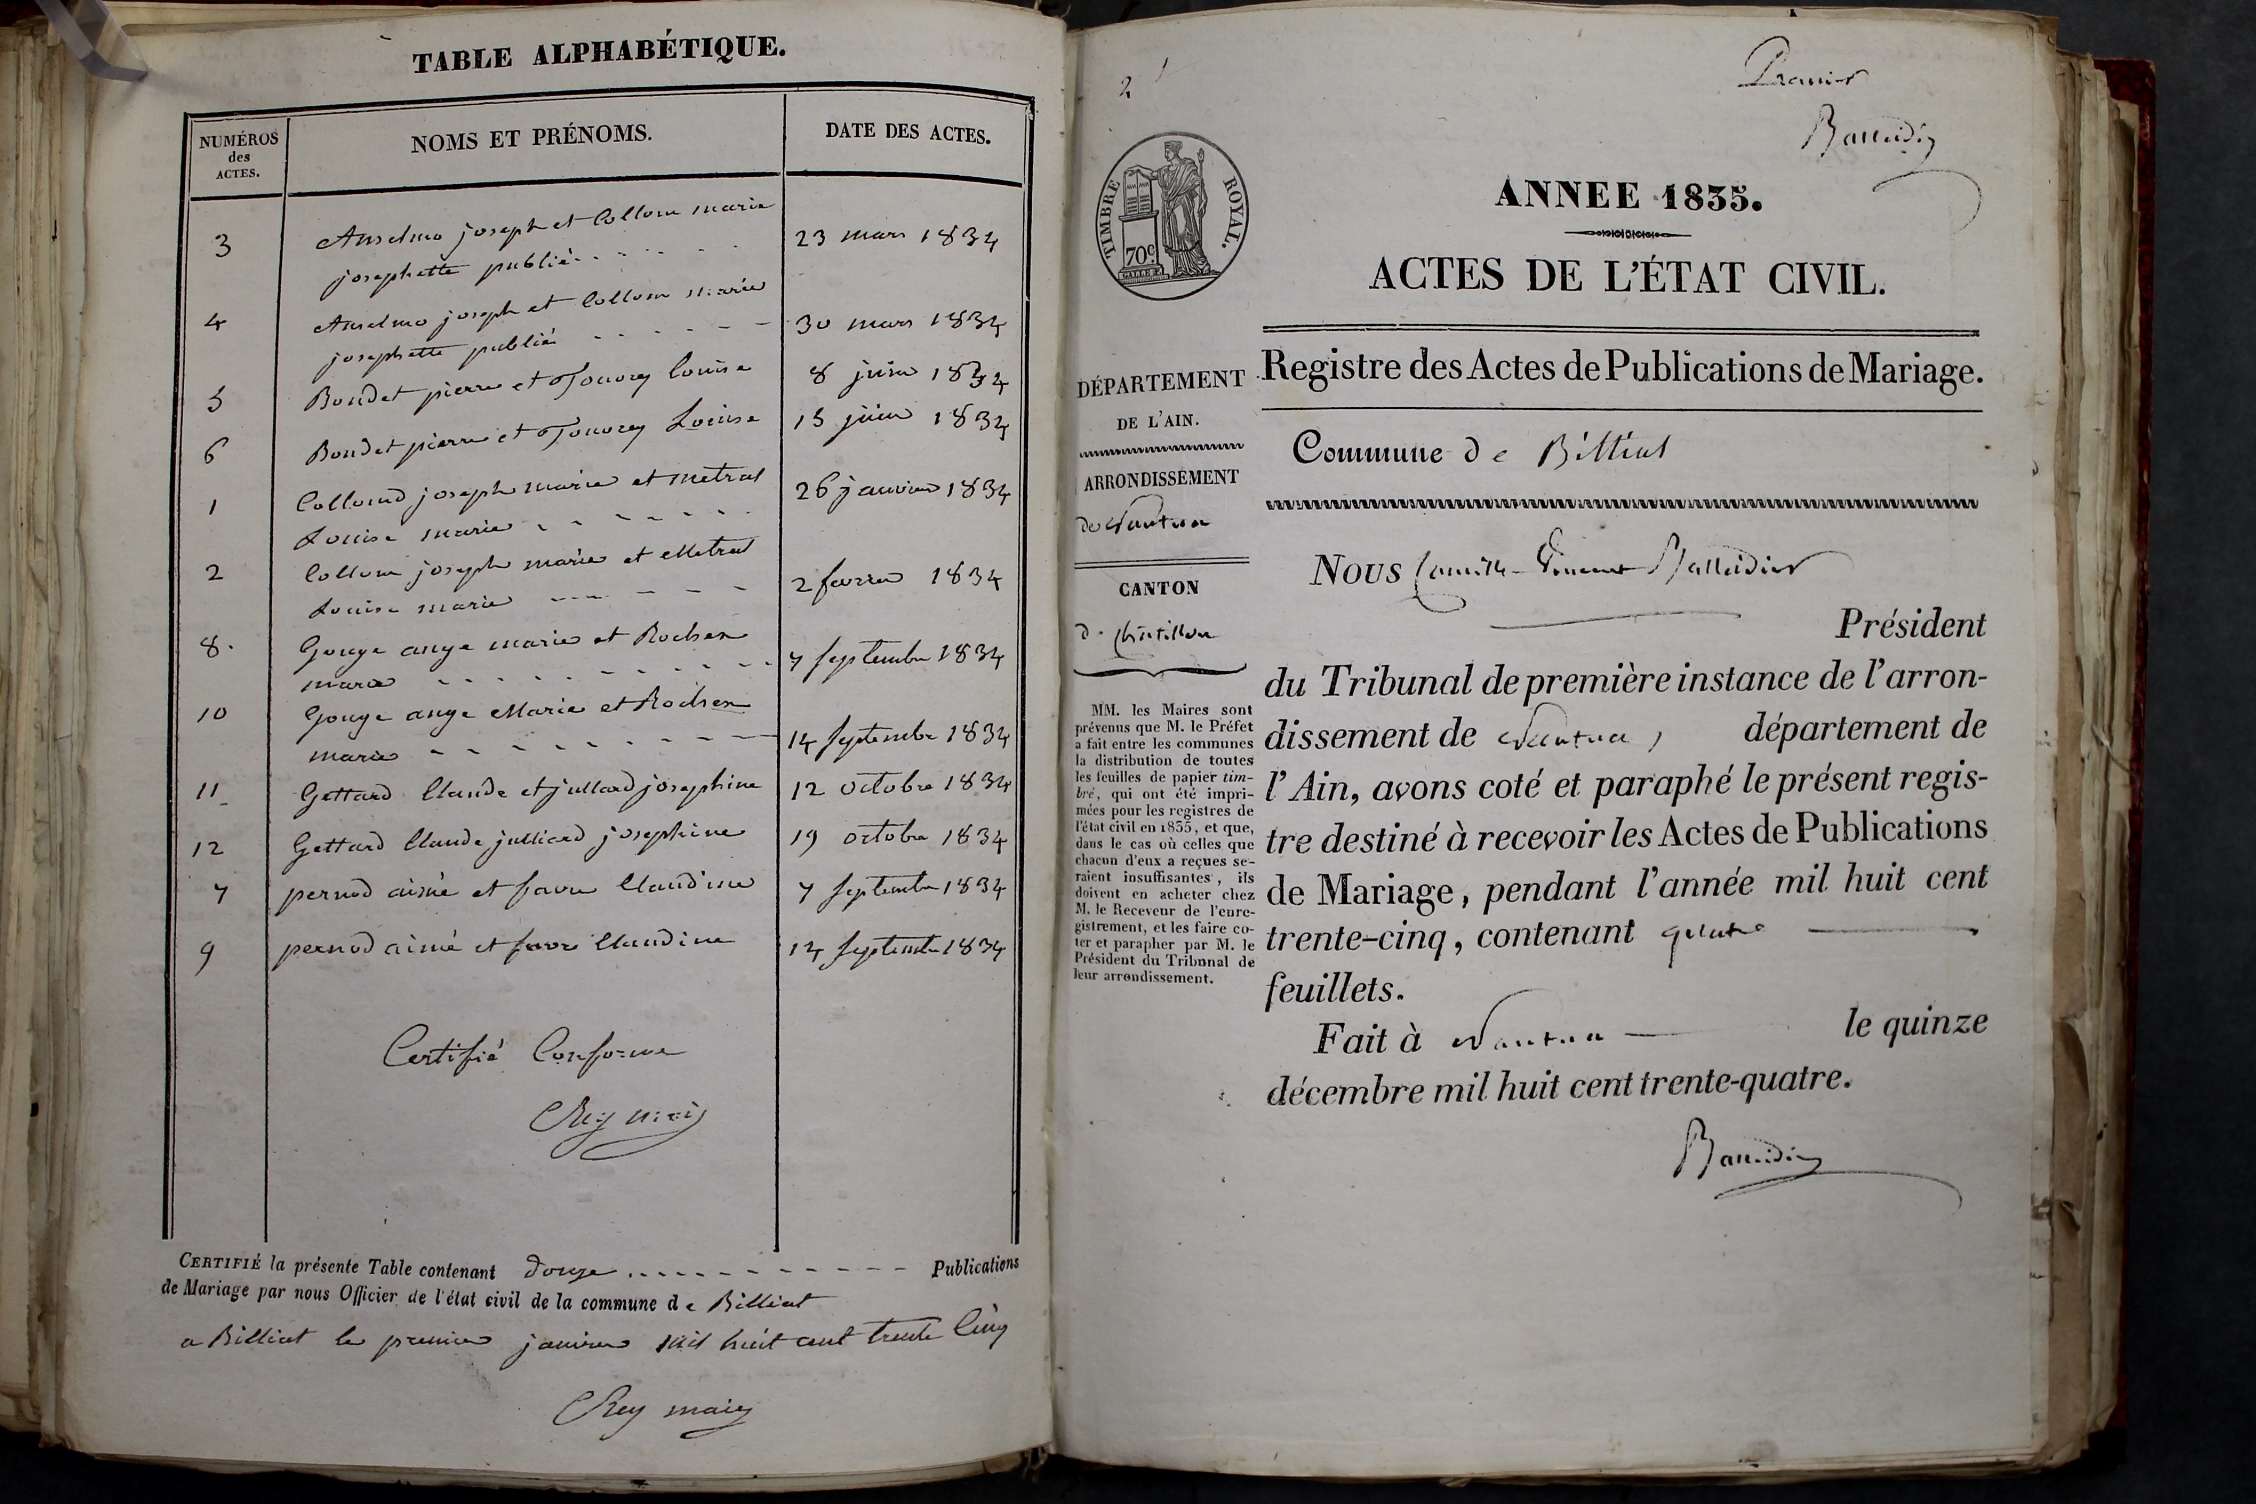 TABLE ALPHABÉTIQUE.
NUMÉROS
des
ACTES.
NOMS ET PRÉNOMS.
DATE DES ACTES.
3 Anselmo joseph et Collom marie 23 mars 1834
josephette publié
4 Anselmo joseph et Collom marie 30 mars 1834
josephette publié
5 Boudet pierre et louise 8 juin 1834
6 Boudet pierre et Louise 15 juin 1834
1 Collomb joseph marie et metral 26 janvier 1834
Louise marie
2 Collom joseph marie et Metral 2 fevrier 1834
Louise marie
8. Gouge ange marie et 7 septembre 1834
marie
10 Gouge ange Marie et 14 septembre 1834
marie
11 Gettard Claude et julliard josephine 12 octobre 1834
12 Gettard Claude julliard josephine 19 octobre 1834
7 pernod aimé et favre Claudine 7 septembre 1834
9 pernod aimé et favre Claudine 14 septembre 1834
Certifié Conforme
Rey maire
CERTIFIÉ la présente Table contenant douze Publications
de Mariage par nous Officier de l'état civil de la commune de Billiat
a Billiat le premier janvier mil huit cent trente Cinq
Rey maire
2
Premier
Balleidier
TIMBRE ROYAL.
70c
ANNEE 1835.
ACTES DE L'ÉTAT CIVIL.
Registre des Actes de Publications de Mariage.
DÉPARTEMENT
DE L'AIN.
ARRONDISSEMENT
de Nantua
CANTON
de Chatillon
MM. les Maires sont
prévenus que M. le Préfet
a fait entre les communes
la distribution de toutes
les feuilles de papier tim-
bré, qui ont été impri-
mées pour les registres de
l'état civil en 1835, et que,
dans le cas où celles que
chacun d'eux a reçues se-
raient insuffisantes, ils
doivent en acheter chez
M. le Receveur de l'enre-
gistrement, et les faire co-
ter et parapher par M. le
Président du Tribunal de
leur arrondissement.
Commune de Billiat
Nous Camille Vincent Balleidier
Président
du Tribunal de première instance de l'arron-
dissement de Nantua, département de
l'Ain, avons coté et paraphé le présent regis-
tre destiné à recevoir les Actes de Publications
de Mariage, pendant l'année mil huit cent
trente-cinq, contenant quatre
feuillets.
Fait à Nantua le quinze
décembre mil huit cent trente-quatre.
Balleidier